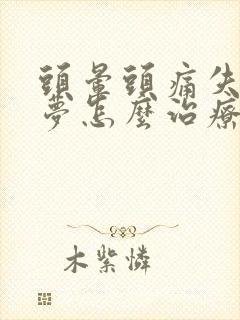 頭暈頭痛失
夢怎麼治療
木紫憐